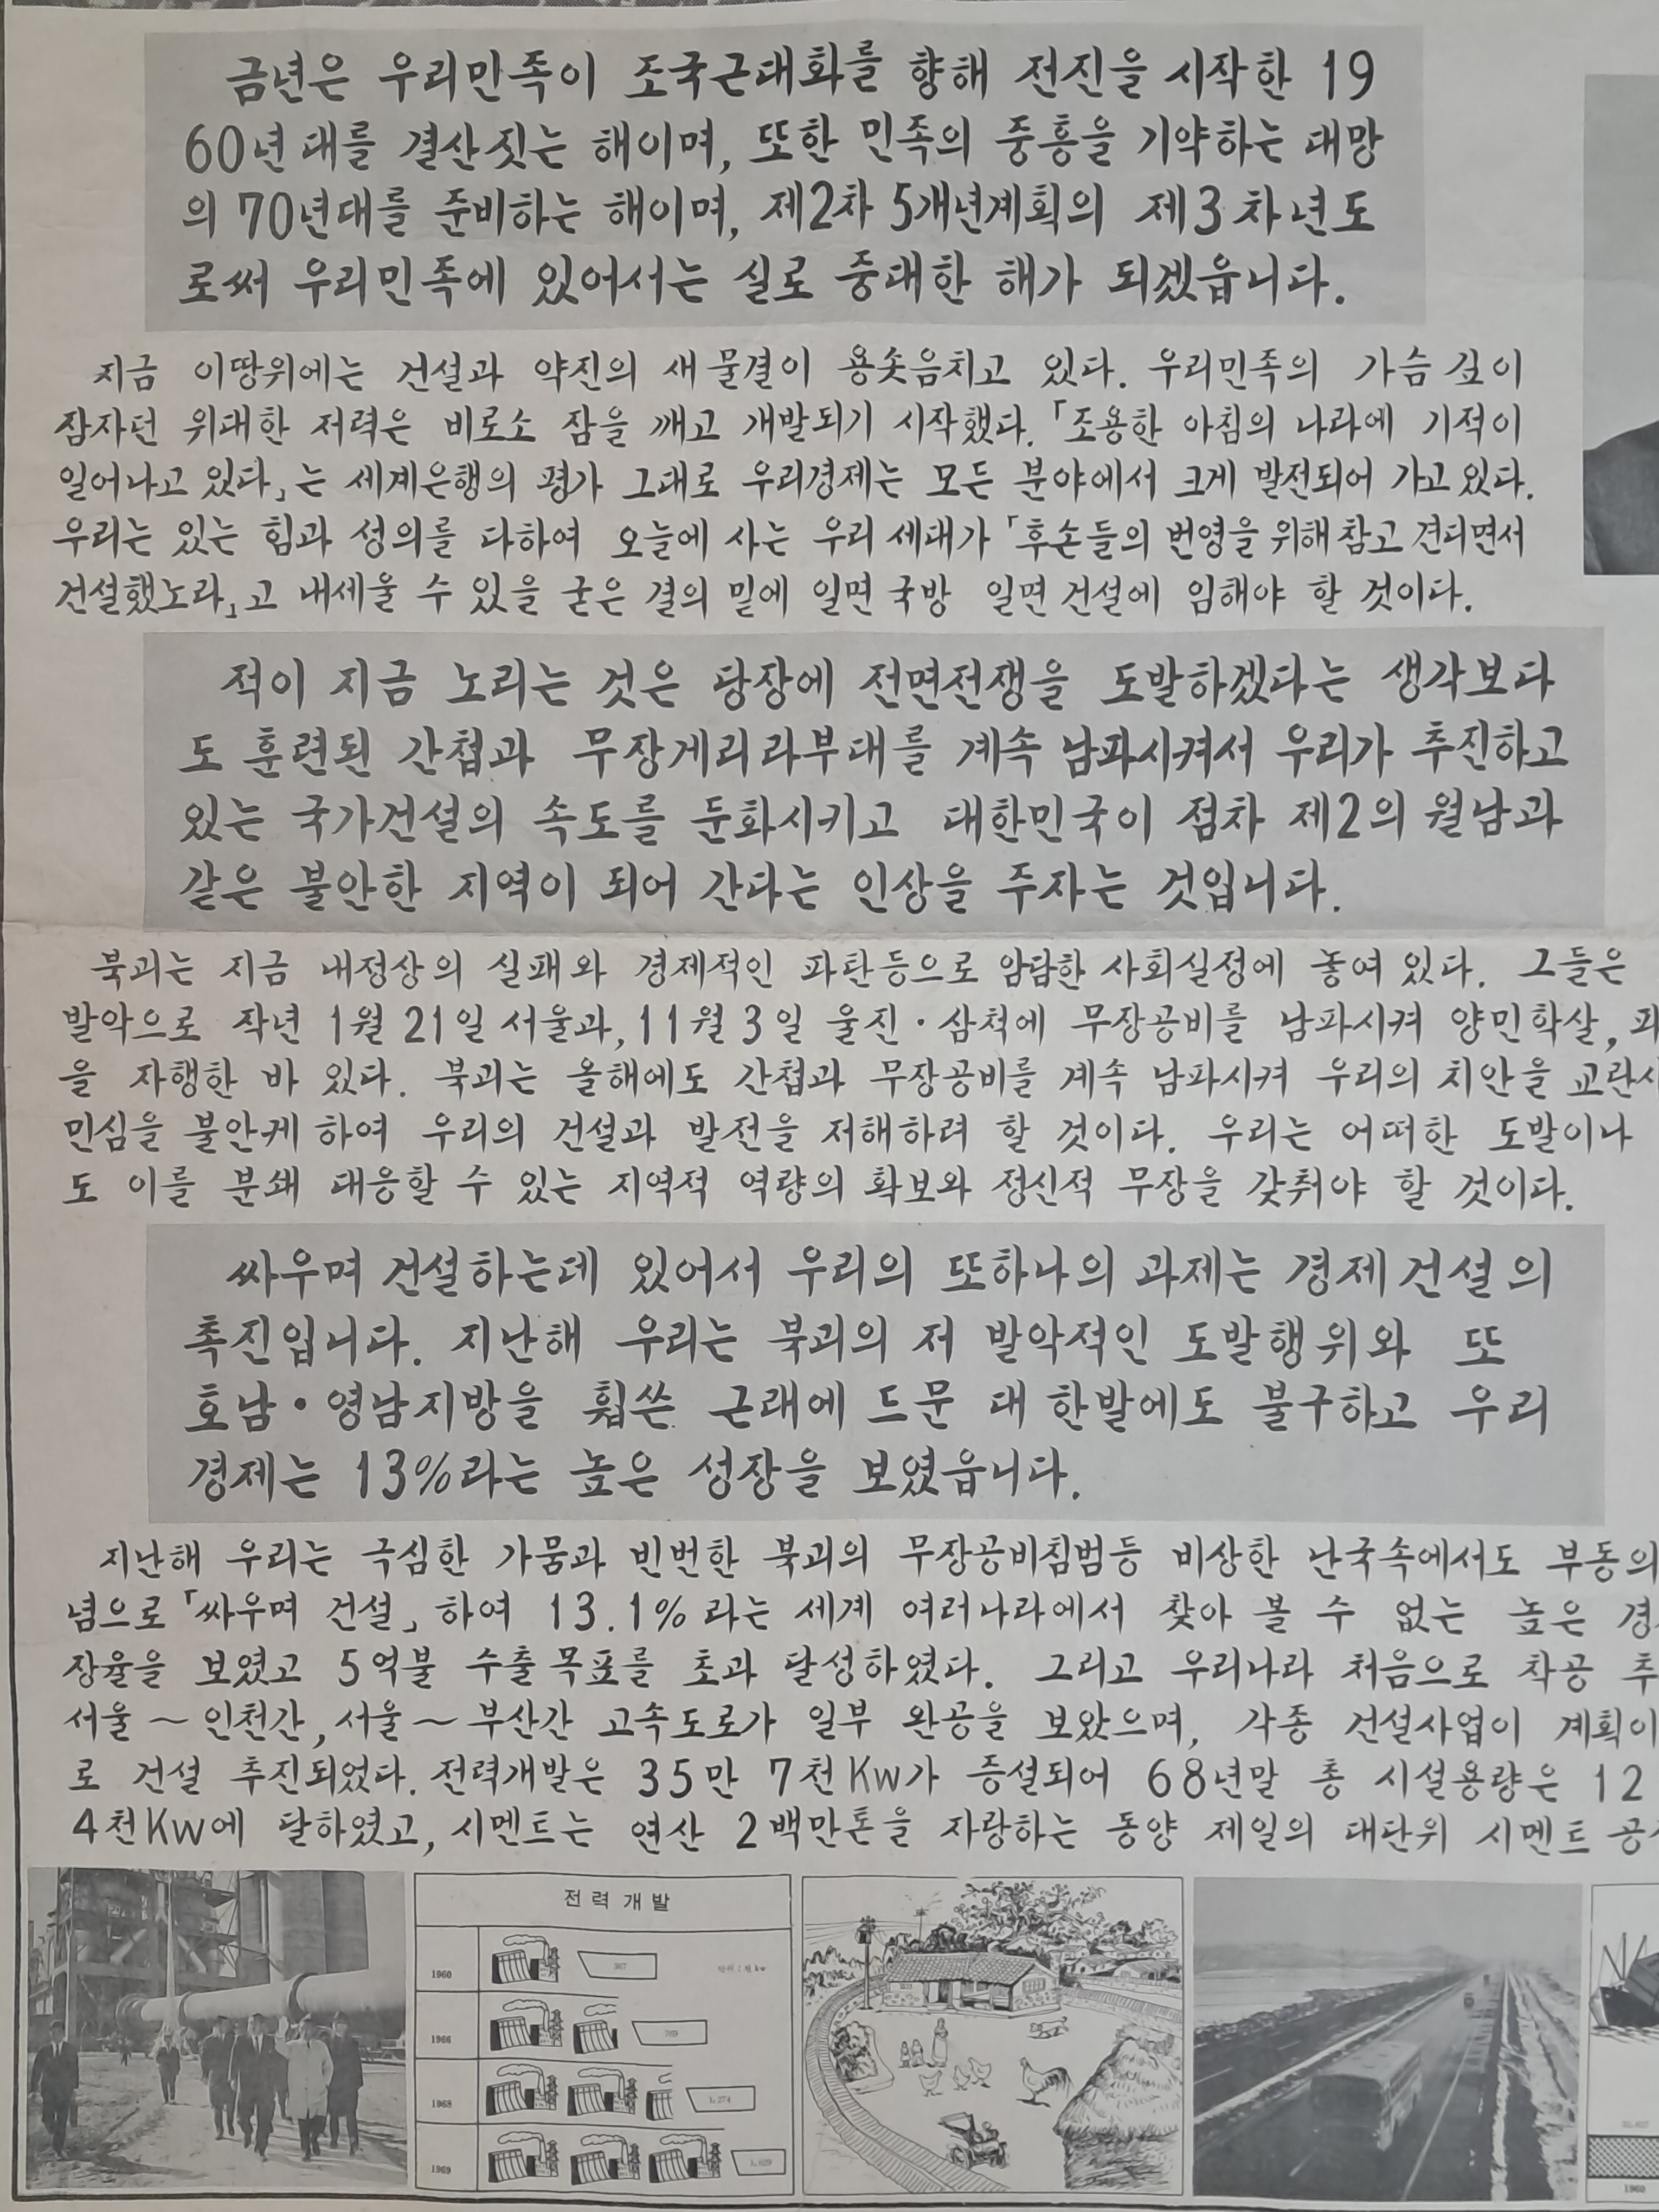 금년은 우리민족이 조국근대화를 향해 전진을 시작한 19
60년대를 결산짓는 해이며, 또한 민족의 중흥을 기약하는 대망
의 70년대를 준비하는 해이며, 제2차 5개년계획의 제3차년도
로써 우리민족에 있어서는 실로 중대한 해가 되겠읍니다.
지금 이땅위에는 건설과 약진의 새물결이 용솟음치고 있다. 우리민족의 가슴깊이
잠자던 위대한 저력은 비로소 잠을 깨고 개발되기 시작했다. 「조용한 아침의 나라에 기적이
일어나고 있다」는 세계은행의 평가 그대로 우리경제는 모든 분야에서 크게 발전되어 가고있다.
우리는 있는 힘과 성의를 다하여 오늘에 사는 우리 세대가 「후손들의 번영을 위해 참고 견디면서
건설했노라」고 내세울 수 있을 굳은 결의 밑에 일면국방 일면건설에 임해야 할 것이다.
적이 지금 노리는 것은 당장에 전면전쟁을 도발하겠다는 생각보다
도 훈련된 간첩과 무장게리라부대를 계속 남파시켜서 우리가 추진하고
있는 국가건설의 속도를 둔화시키고 대한민국이 점차 제2의 월남과
같은 불안한 지역이 되어 간다는 인상을 주자는 것입니다.
북괴는 지금 내정상의 실패와 경제적인 파탄등으로 암담한 사회실정에 놓여 있다. 그들은
발악으로 작년 1월 21일 서울과, 11월 3일 울진·삼척에 무장공비를 남파시켜 양민학살, 파
을 자행한 바 있다. 북괴는 올해에도 간첩과 무장공비를 계속 남파시켜 우리의 치안을 교란시
민심을 불안케 하여 우리의 건설과 발전을 저해하려 할 것이다. 우리는 어떠한 도발이나
도 이를 분쇄 대응할 수 있는 지역적 역량의 확보와 정신적 무장을 갖춰야 할 것이다.
싸우며 건설하는데 있어서 우리의 또하나의 과제는 경제건설의
촉진입니다. 지난해 우리는 북괴의 저 발악적인 도발행위와 또
호남·영남지방을 휩쓴 근래에 드문 대 한발에도 불구하고 우리
경제는 13%라는 높은 성장을 보였읍니다.
지난해 우리는 극심한 가뭄과 빈번한 북괴의 무장공비침범등 비상한 난국속에서도 부동의
념으로 「싸우며 건설」하여 13.1%라는 세계 여러나라에서 찾아 볼 수 없는 높은 경
장율을 보였고 5억불 수출목표를 초과 달성하였다. 그리고 우리나라 처음으로 착공 추
서울~인천간, 서울~부산간 고속도로가 일부 완공을 보았으며, 각종 건설사업이 계획이
로 건설 추진되었다. 전력개발은 35만 7천Kw가 증설되어 68년말 총 시설용량은 12
4천Kw에 달하였고, 시멘트는 연산 2백만톤을 자랑하는 동양 제일의 대단위 시멘트 공
전력개발
1960 367 단위:천kw
1966 769
1968 1,274
1969 1,629
1960